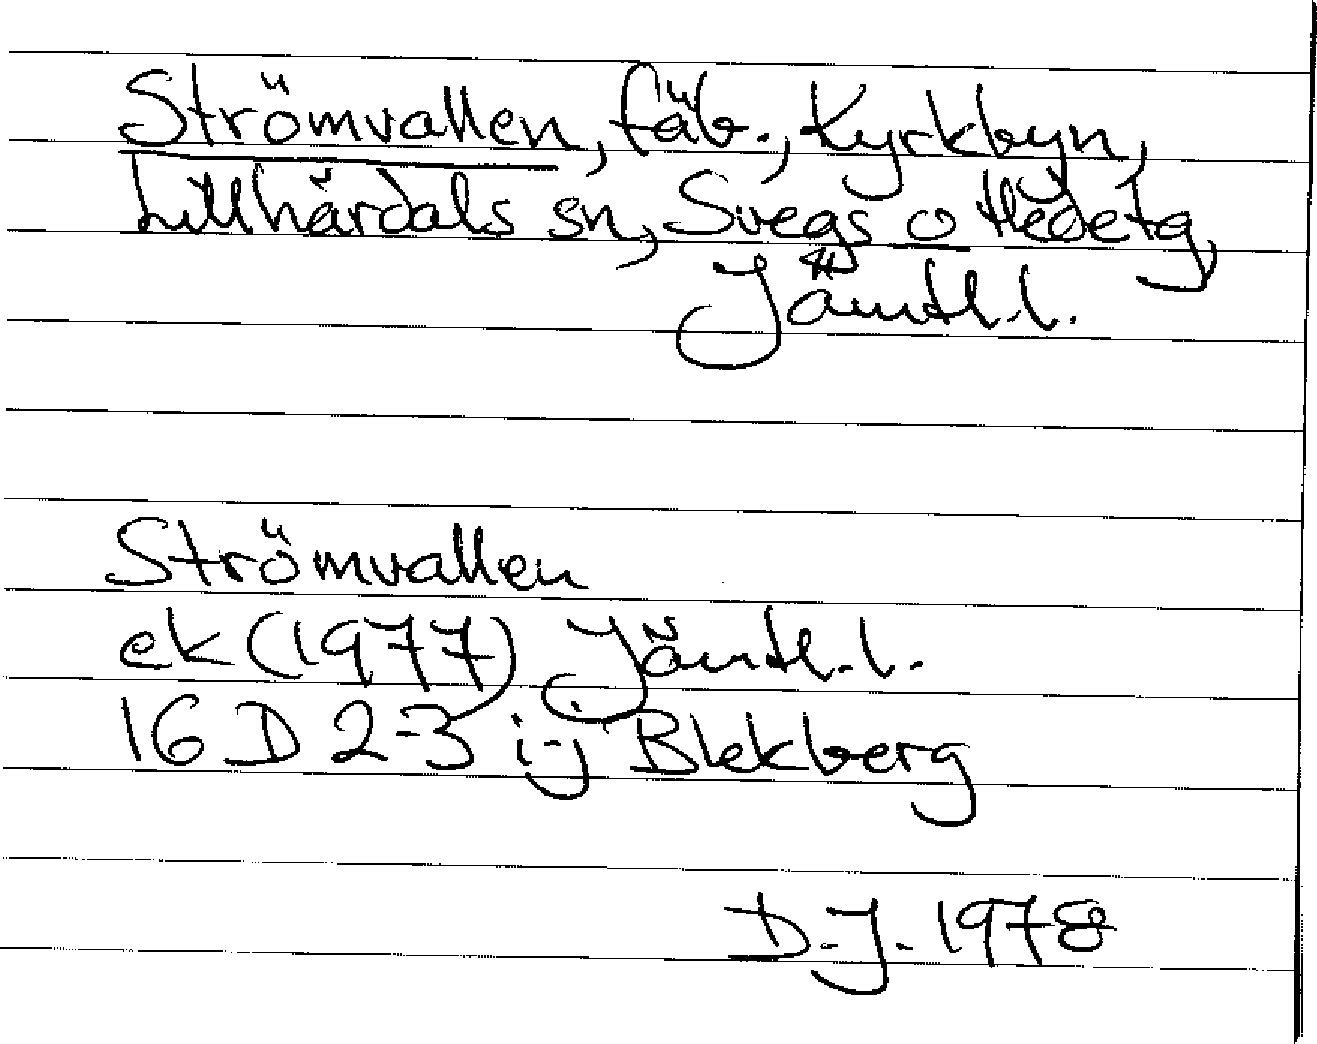 Strömvallen, fäb., Kyrkbyn,
Lillhärdals sn, Svegs o Hedetg,
Jämtl.l.
Strömvallen
ek (1977) Jämtl.l.
16 D 2-3 i-j Blekberg
D.J. 1978